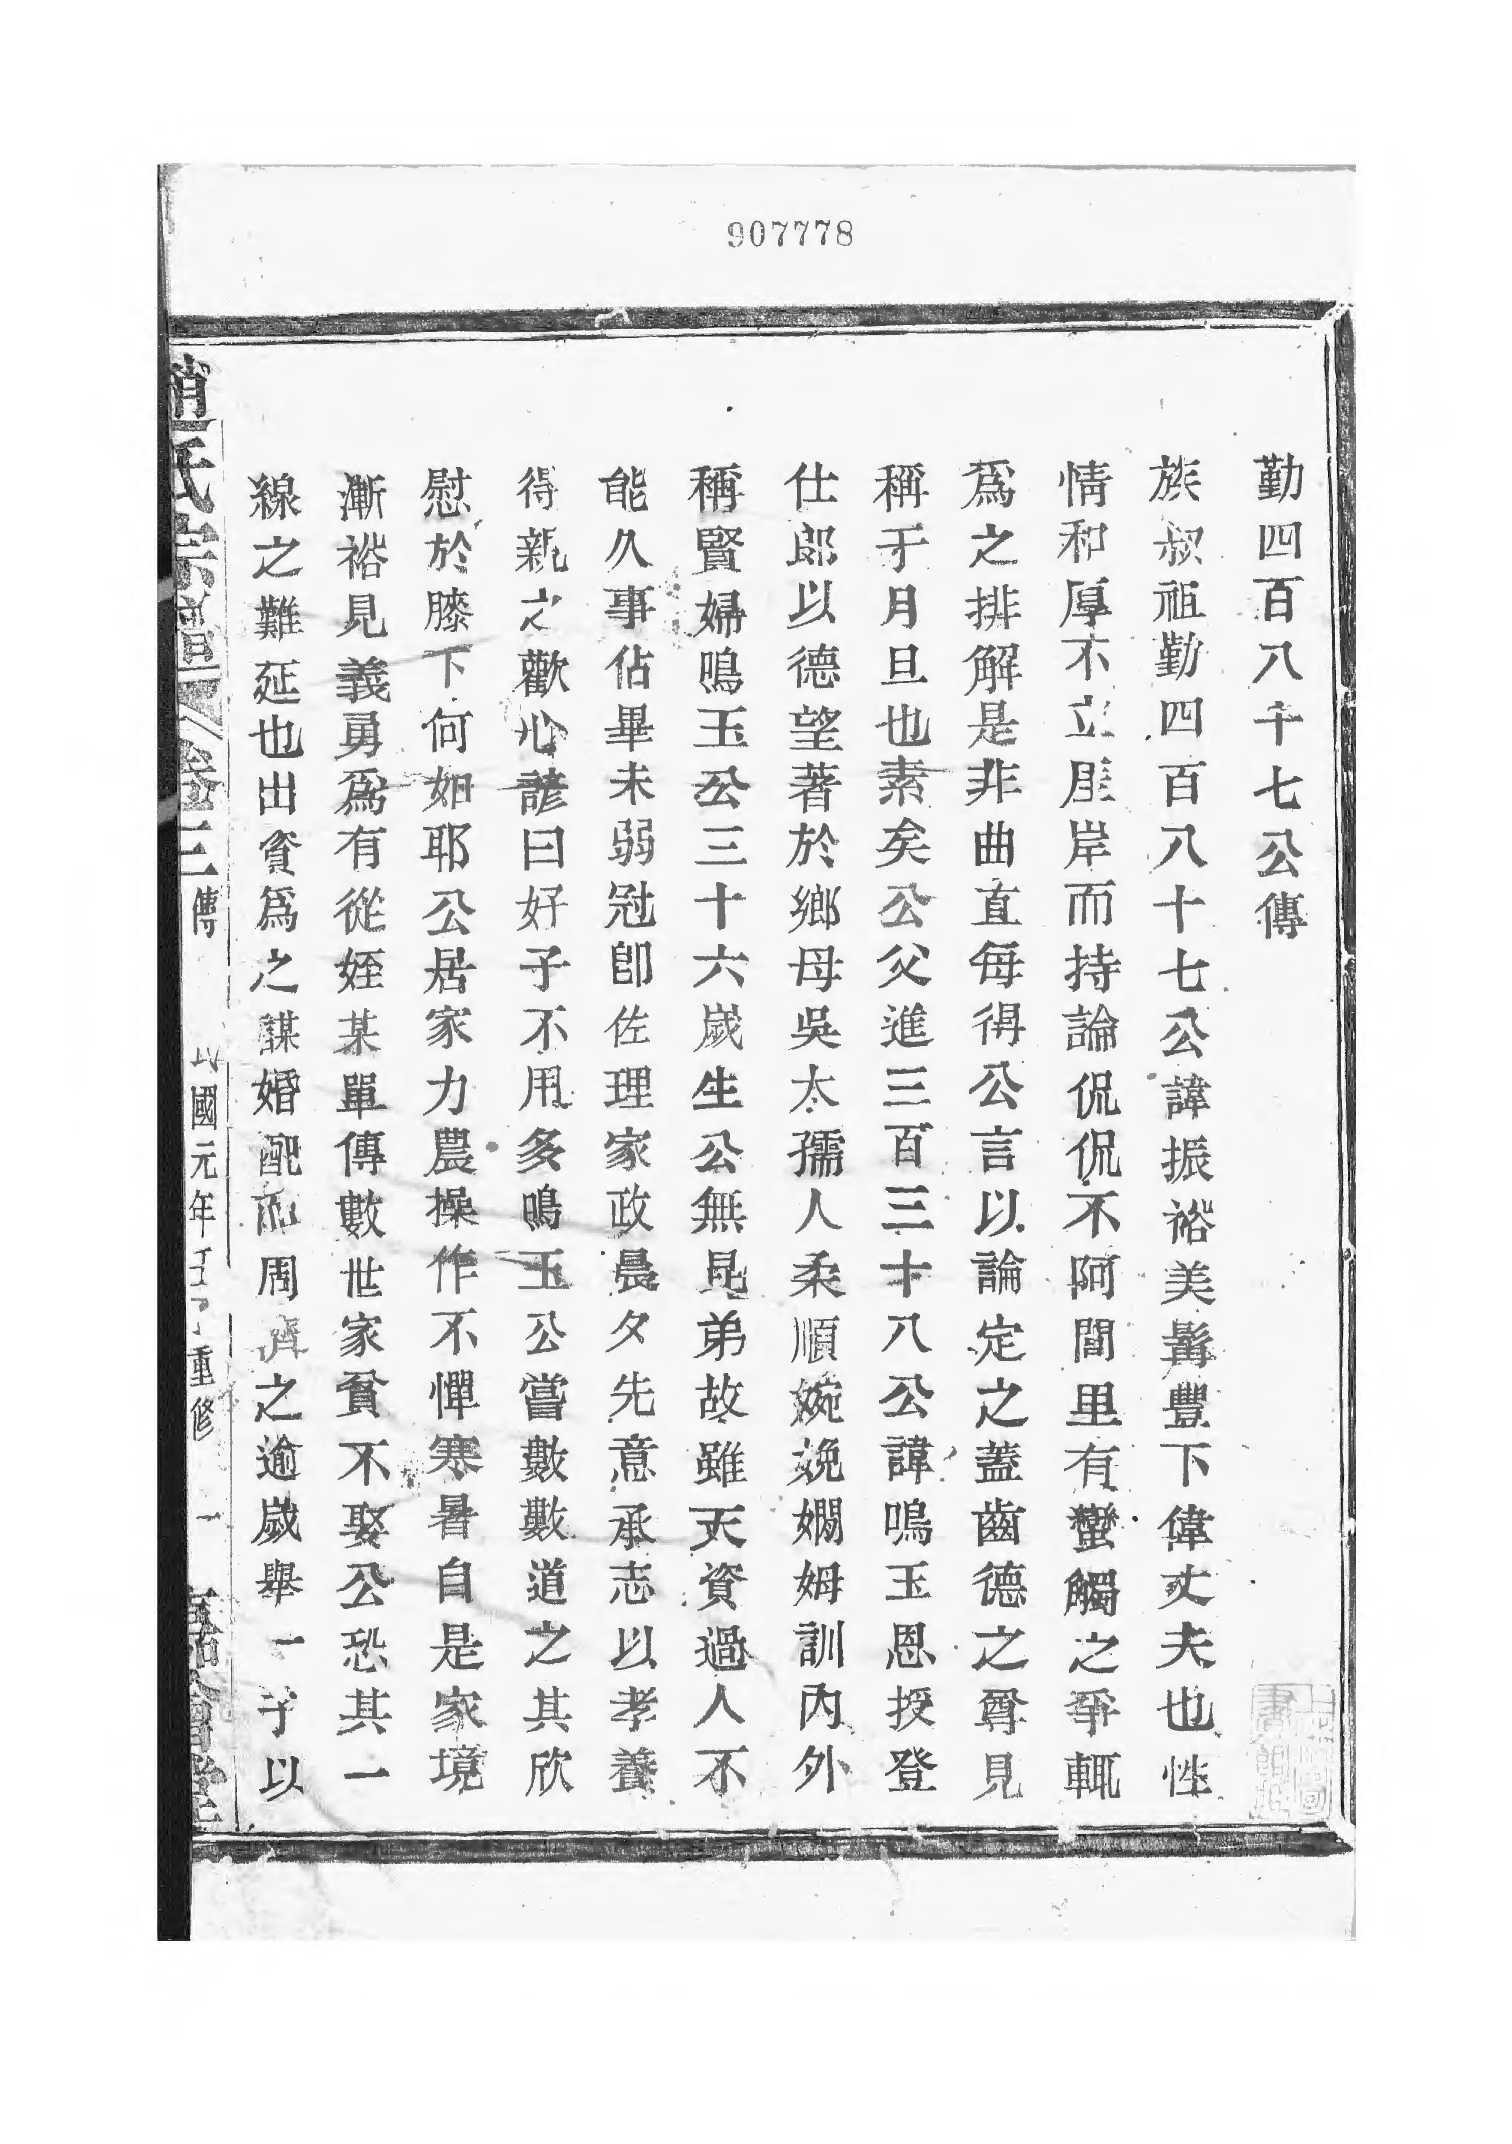 907778
勤四百八十七公傳
族叔祖勤四百八十七公諱振裕美髯豐下偉丈夫也性
情和厚不立崖岸而持論侃侃不阿閭里有蠻觸之爭輒
爲之排解是非曲直每得公言以論定之蓋齒德之尊見
稱于月旦也素矣公父進三百三十八公諱鳴玉恩授登
仕郎以德望著於鄉母吳太孺人柔順婉娩嫻姆訓內外
稱賢婦鳴玉公三十六歲生公無昆弟故雖天資過人不
能久事佔畢未弱冠卽佐理家政晨夕先意承志以孝養
得親之歡心諺曰好子不用多鳴玉公嘗數數道之其欣
慰於膝下何如耶公居家力農操作不憚寒暑自是家境
漸裕見義勇爲有從姪某單傳數世家貧不娶公恐其一
線之難延也出資爲之謀婚配而周濟之逾歲舉一子以
趙氏宗譜 卷三 傳 民國元年壬子重修 一